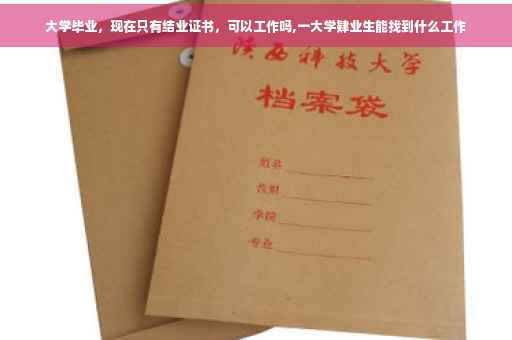 大学毕业，现在只有结业证书，可以工作吗,一大学肄业生能找到什么工作
陕西科技大学
档案袋
姓名
学院
专业